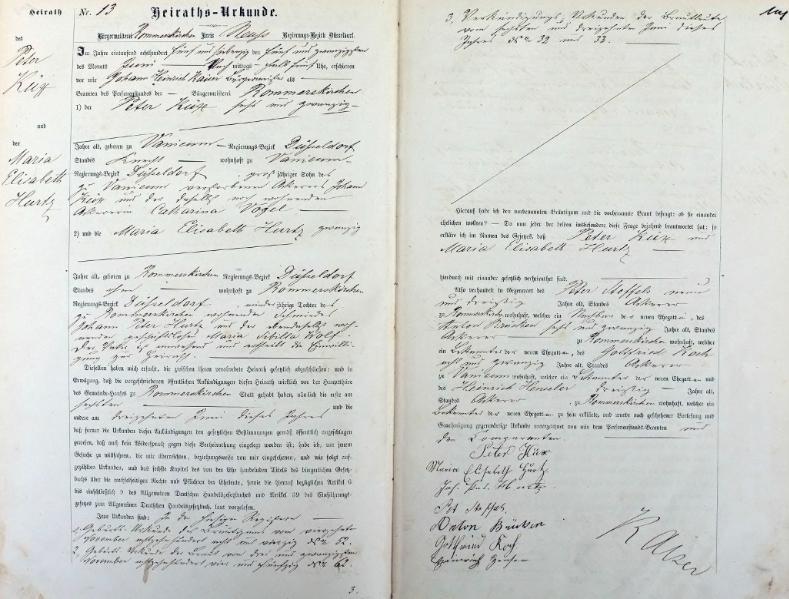 Heirath
des
Peter
und
der
Maria
Elisabeth
Hurtz
Nr. 13 Heiraths-Urkunde.
Bürgermeisterei Rommerskirchen Kreis Neuss Regierungs-Bezirk Düsseldorf.
Im Jahre eintausend achthundert fünf und siebenzig den fünf und zwanzigsten
des Monats Juni mittags halb fünf Uhr, erschienen
vor mir Johann Heinrich Bürgermeister als
Beamten des Personenstandes der Bürgermeisterei Rommerskirchen
1) der Peter sechs und zwanzig
Jahre alt, geboren zu Vanicum Regierungs-Bezirk Düsseldorf
Standes Knecht wohnhaft zu Vanicum
Regierungs-Bezirk Düsseldorf, großjähriger Sohn des
zu Vanicum verstorbenen Ackerers Johann
und der daselbst noch wohnenden
Ackererin Catharina Vogel
2) und die Maria Elisabeth Hurtz zwanzig
Jahre alt, geboren zu Rommerskirchen Regierungs-Bezirk Düsseldorf
Standes ohne wohnhaft zu Rommerskirchen
Regierungs-Bezirk Düsseldorf, minderjährige Tochter des
zu Rommerskirchen wohnenden Schmiedes
Johann Peter Hurtz und der ebendaselbst
geschäftslosen Maria Sibilla Wolf.
Der Vater ist anwesend und ertheilt die Einwilligung
zur Heirath.
Dieselben haben mich ersucht, die zwischen ihnen verabredete Heirath gesetzlich abzuschließen; und in
Erwägung, daß die vorgeschriebenen öffentlichen Ankündigungen dieser Heirath wirklich vor der Hauptthüre
des Gemeinde-Hauses zu Rommerskirchen Statt gehabt haben, nämlich die erste am
sechsten und die
andere am dreizehnten Juni dieses Jahres
daß ferner die Urkunden dieser Ankündigungen den gesetzlichen Bestimmungen gemäß öffentlich angeschlagen
gewesen, daß auch kein Widerspruch gegen diese Verheirathung eingelegt worden ist; habe ich, um jenem
Gesuche zu willfahren, die mir überreichten, beziehungsweise von mir eingesehenen, und wie folgt auf-
gezählten Urkunden, und das sechste Kapitel des von der Ehe handelnden Titels des bürgerlichen Gesetz-
buchs über die wechselseitigen Rechte und Pflichten der Eheleute, sowie die hierauf bezüglichen Artikel 6
bis einschließlich 9 des Allgemeinen Deutschen Handelsgesetzbuchs und Artikel 19 des Einführungs-
gesetzes zum Allgemeinen Deutschen Handelsgesetzbuch, laut vorgelesen.
Jene Urkunden sind: In den hiesigen Registern
1. Geburts Urkunde des Bräutigams vom vierzehnten
November achtzehnhundert acht und vierzig No 52.
2. Geburts Urkunde der Braut vom drei und zwanzigsten
November achtzehnhundert vier und fünfzig No 62.
3.
3. Verkündigungs-Urkunden der Brautleute
vom sechsten und dreizehnten Juni dieses
Jahres No 32 und 33.
Hierauf habe ich den vorbenannten Bräutigam und die vorbenannte Braut befragt: ob sie einander
ehelichen wollen? — Da nun jeder der beiden insbesondere diese Frage bejahend beantwortet hat: so
erkläre ich im Namen des Gesetzes, daß Peter und
Maria Elisabeth Hurtz
hierdurch mit einander gesetzlich verheirathet sind.
Also verhandelt in Gegenwart des Peter Stoffels neun
und dreißig Jahre alt, Standes Ackerer
zu Rommerskirchen wohnhaft, welcher ein der neuen Ehegatten, des
Anton sechs und zwanzig Jahre alt, Standes
Ackerer zu Rommerskirchen wohnhaft, welcher
ein Bekannter der neuen Ehegatten, des Gottfried Koch
acht und zwanzig Jahre alt, Standes Ackerer
zu Vanicum wohnhaft, welcher ein Bekannter der neuen Ehegatten und
des Heinrich dreißig Jahre alt,
Standes Ackerer, zu Rommerskirchen wohnhaft, welcher ein
Bekannter der neuen Ehegatten zu sein erklärte, und wurde nach geschehener Vorlesung und
Genehmigung gegenwärtige Urkunde unterzeichnet von mir dem Personenstands-Beamten und
den Comparenten
Peter
Maria Elisabeth Hurtz
Joh. Pet. Hurtz
Pet Stoffels
Anton
Gottfried Koch
Heinrich